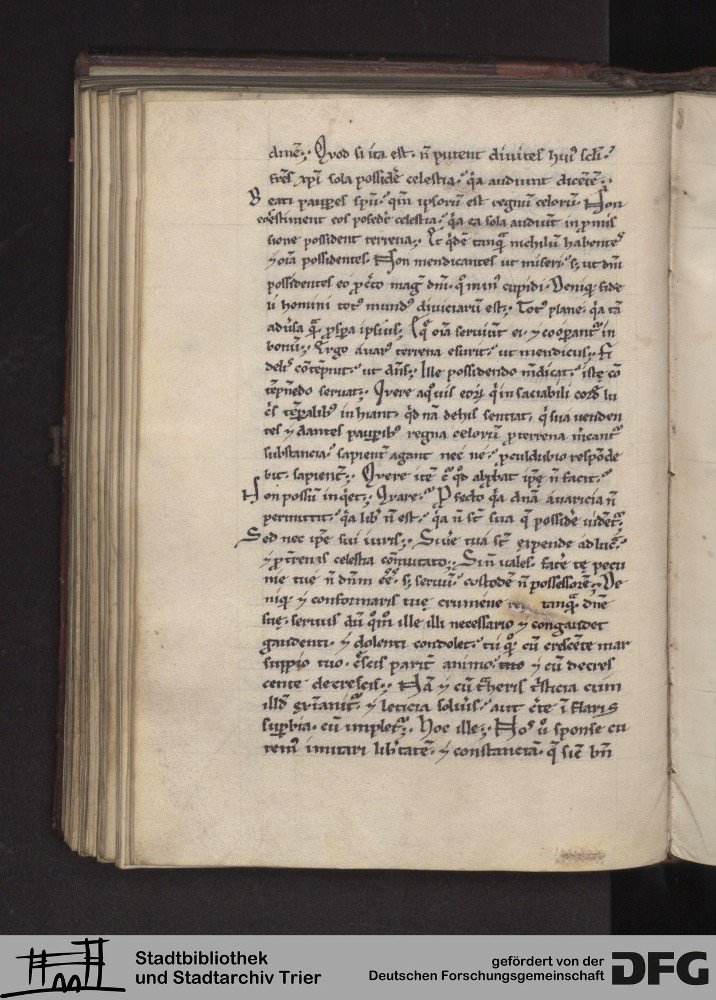 Quod si ita est. n̄ putent diuites hui᷒ scl̄i.
fr̄es xp̄i sola possidē celestia. q̄a audiunt dicētē.
Beati paup̄es sp̄u. qm̄ ipsorū est regnū celorū. Non
existiment eos posedē celestia. q̄a ea sola audiūt in pmis
sione possident terrena. Et qdē tanq̄ nichilū habentes
⁊ oīa possidentes. Non mendicantes ut miseri. s; ut dn̄i
possidentes eo pcto mag᷒ dn̄i. q᷒ min᷒ cupidi. Deniq; fide
li homini tot᷒ mund᷒ diuiciarū est. Tot᷒ plane. q̄a tā
adūsa q̄ pspa ipsius. eq᷒ oīa seruiūt ei. ⁊ coopant᷒ in
bonū. Ergo auar᷒ terrena esurit. ut mendicus. fi
delis cōtēpnit. ut dn̄s. Ille possidendo mdicat. iste cō
tēpnēdo seruat. Quere a quis eorū q̄ insaciabili corde lu
cris tēpalib᷒ inhiant. qd nā de his sentiat. q̄ sua uenden
tes ⁊ dantes paupib᷒ regna celorū p terrena mcant᷒
substancia. sapient᷒ agant nec ne. pculdubio respōde
bit. sapient᷒. Quere itē c᷒ q᷒d approbat ip̄e n̄ facit.
Non possū inq̄et. Quare. Pfecto q̄a dn̄a auaricia n̄
permittit. q̄a lib᷒ n̄ est. q̄a n̄ st̄ sua q̄ possidē uidet᷒.
Sed nec ip̄e sui iuris. Si ūe tua st̄ expende ad luc᷒.
⁊ p t᷒renis celestia cōmutato. Si n̄ uales. fatē te pecu
nie tue n̄ dn̄m eē. s; seruū. custodē n̄ possessorē. De
niq; ⁊ conformaris tue crumene tanq̄ dn̄e
sue. seruus Nā qm̄ ille illi necessario ⁊ congaudet
gaudenti. ⁊ dolenti condolet. tu q᷒ cū crescēte mar
suppio tuo. c᷒scis parit᷒ animo. ⁊ cū decres
cente decrescis. Nā ⁊ cū tristicia cum
illd ⁊ leticia solūis. aut certe īflaris
supbia. cū implet᷒. Hoc ille. Nos ū sponse cu
rem᷒ imitari lib᷒tatē. ⁊ constanciā. q̄ sic bn̄
Stadtbibliothek
und Stadtarchiv Trier
gefördert von der
Deutschen Forschungsgemeinschaft
DFG